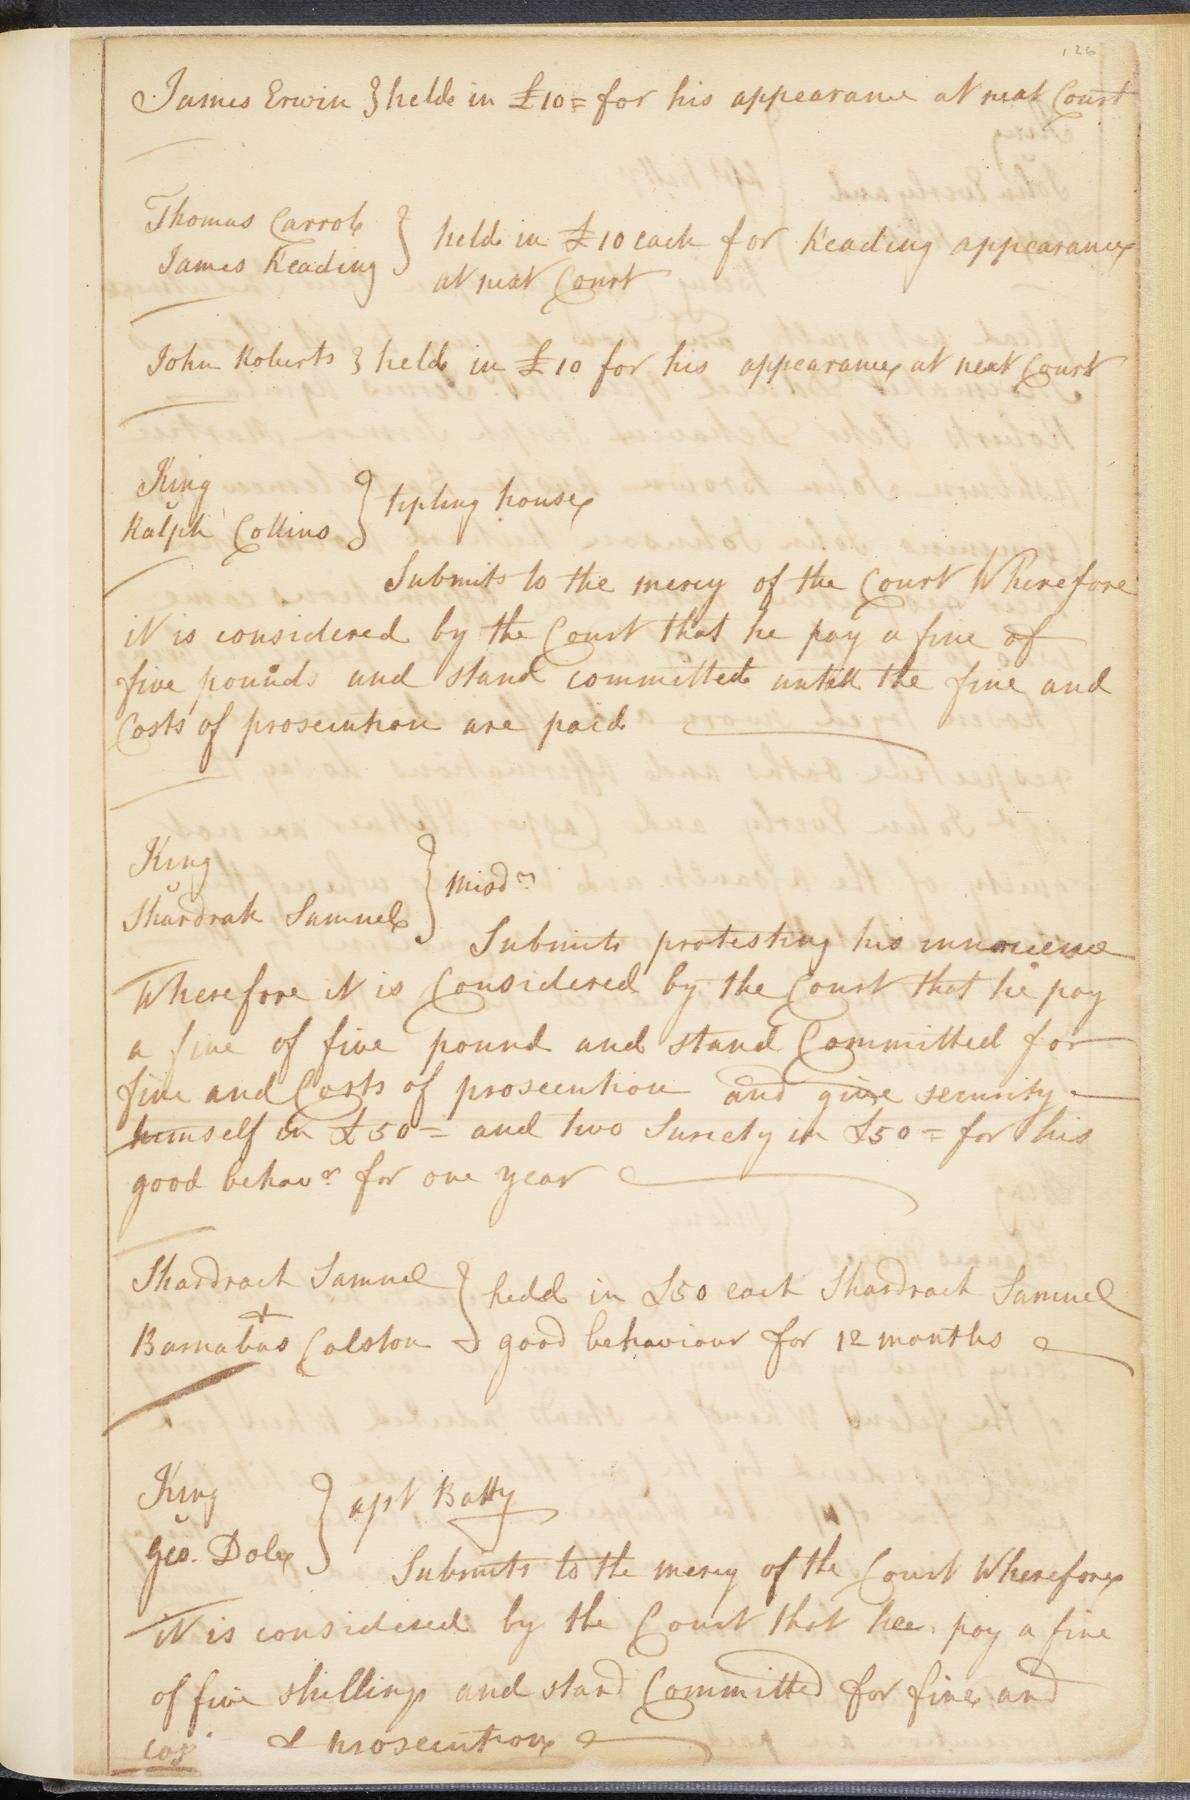 126
James Erwin } held in £10 = for his appearance at next Court
Thomas Carrol
James Keading } held in £10 each for Keading appearance
at next Court
John Roberts } held in £10 for his appearance at next Court
King
v
Ralph Collins } tipling house
Submits to the mercy of the Court Wherefore
it is considered by the Court that he pay a fine of
five pounds and stand committed untill the fine and
Costs of prosecution are paid
King
v
Shardrak Samuel } Misdr
Submits protesting his innocence
Wherefore it is Considered by the Court that he pay
a fine of five pound and stand Committed for
fine and Costs of prosecution and give security
himself in £50 = and two Surety in £50 = for his
good behavr for one year
Shardrach Samuel
+
Barnabas Colston } held in £50 each Shardrach Samuel
good behaviour for 12 months
King
v
Geo. Dole } aslt Batty
Submits to the mercy of the Court Wherefore
it is considered by the Court that hee pay a fine
of five shillings and stand Committed for fine and
& prosecution